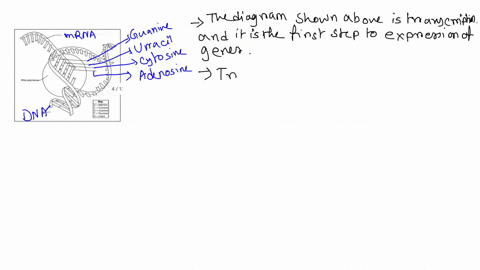 mRNA
Guanine
Urracil
Cytosine
Adenosine
DNA
4/1
→ The diagram shown above is transcription
and it is the first step to expression of
genes.
→ Tr